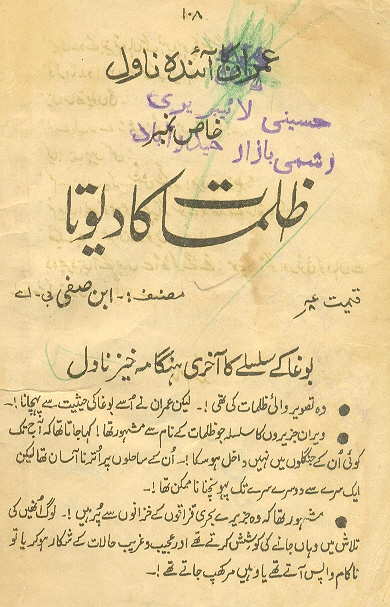 ۱۰۸
عمران کا آئندہ ناول
حسینی لائبریری
خاص نمبر
رشمی بازار حیدرآباد
ظلمات کا دیوتا
قیمت مصنف:۔ ابن صفی بی۔اے
بوغا کے سلسلے کا آخری ہنگامہ خیز ناول
● وہ تصویر والیٔ ظلمات کی تھی!۔ لیکن عمران نے اُسے بوغا کی حیثیت سے پہچانا!۔
● ویران جزیروں کا سلسلہ جو ظلمات کے نام سے مشہور تھا! کہا جاتا تھا کہ آج تک
کوئی اُن کے جنگلوں میں نہیں داخل ہو سکا!۔ اُن کے ساحلوں پر اُترنا آسان تھا لیکن
ایک سرے سے دوسرے سرے تک پہونچنا ناممکن تھا!۔
● مشہور تھا کہ وہ جزیرے بحری قزاقوں کے خزانوں سے پُر ہیں!۔ لوگ اُنھیں کی
تلاش میں وہاں جانے کی کوشش کرتے تھے اور عجیب و غریب حالات کے شکار ہو کر یا تو
ناکام واپس آتے تھے یا وہیں مر کھپ جاتے تھے!۔